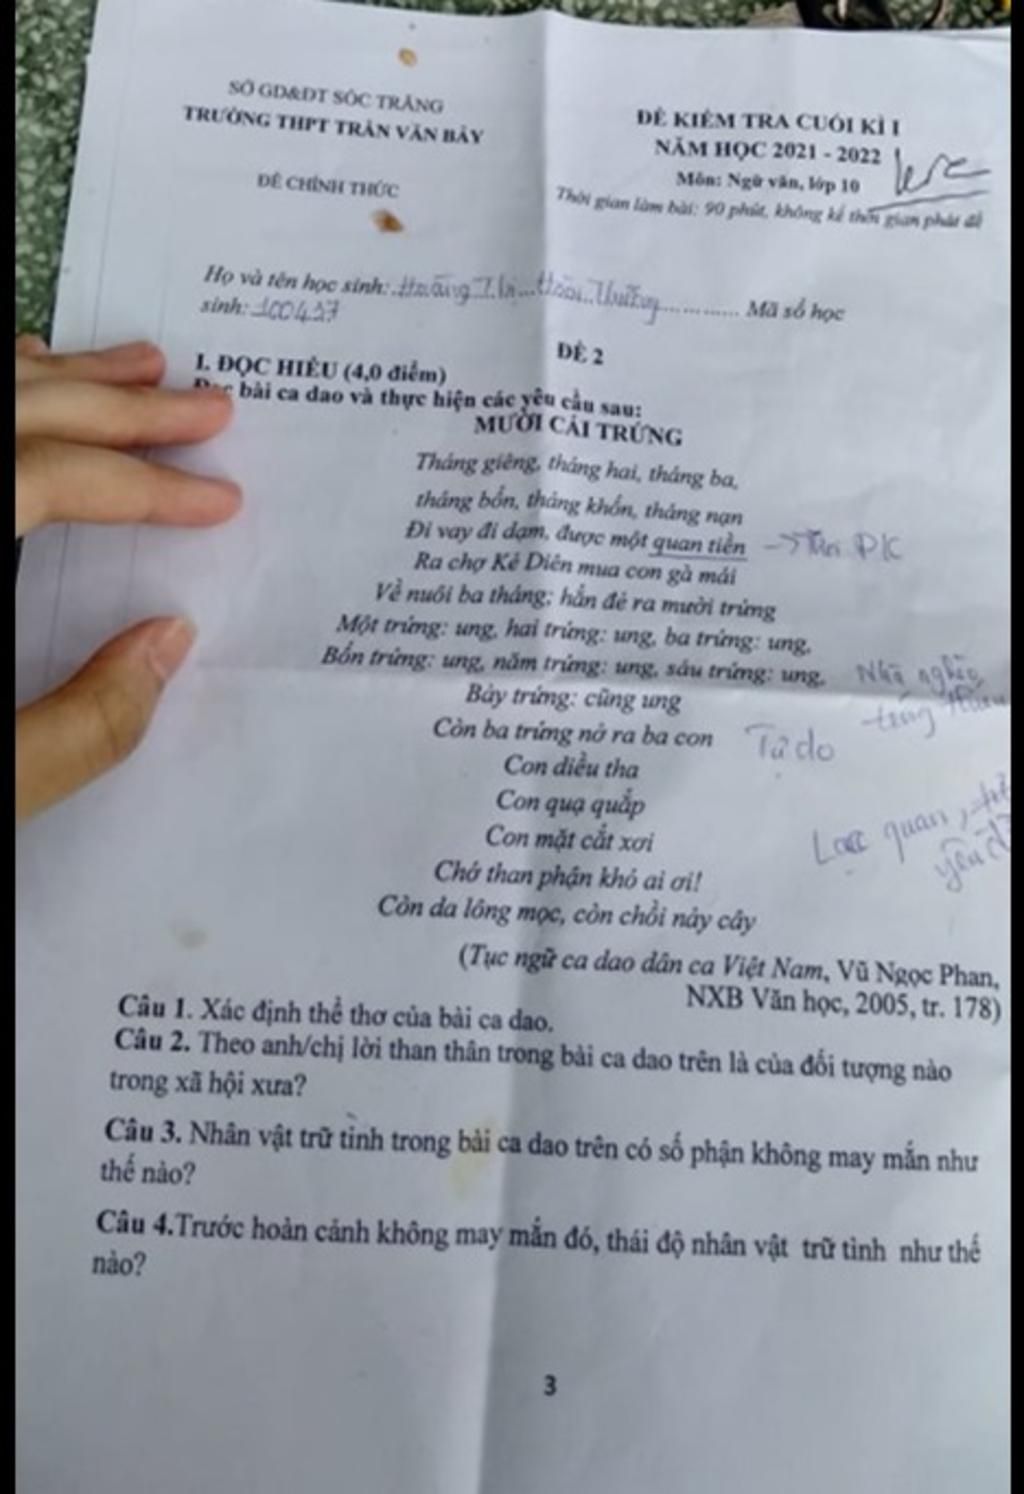 SỞ GD&ĐT SÓC TRĂNG
TRƯỜNG THPT TRẦN VĂN BẢY
ĐỀ CHÍNH THỨC
ĐỀ KIỂM TRA CUỐI KÌ I
NĂM HỌC 2021 - 2022
Môn: Ngữ văn, lớp 10
Thời gian làm bài: 90 phút, không kể thời gian phát đề
Họ và tên học sinh: Hoàng Thị Hoài Thương ............ Mã số học
sinh: 100437
ĐỀ 2
I. ĐỌC HIỂU (4,0 điểm)
Đọc bài ca dao và thực hiện các yêu cầu sau:
MƯỜI CÁI TRỨNG
Tháng giêng, tháng hai, tháng ba,
tháng bốn, tháng khốn, tháng nạn
Đi vay đi dạm, được một quan tiền → PK
Ra chợ Kẻ Diên mua con gà mái
Về nuôi ba tháng; hắn đẻ ra mười trứng
Một trứng: ung, hai trứng: ung, ba trứng: ung,
Bốn trứng: ung, năm trứng: ung, sáu trứng: ung,
Bảy trứng: cũng ung
Còn ba trứng nở ra ba con
Tự do
Con diều tha
Con quạ quắp
Con mặt cắt xơi
Lạc quan,
Chớ than phận khó ai ơi!
Còn da lông mọc, còn chồi nảy cây
(Tục ngữ ca dao dân ca Việt Nam, Vũ Ngọc Phan,
NXB Văn học, 2005, tr. 178)
Câu 1. Xác định thể thơ của bài ca dao.
Câu 2. Theo anh/chị lời than thân trong bài ca dao trên là của đối tượng nào
trong xã hội xưa?
Câu 3. Nhân vật trữ tình trong bài ca dao trên có số phận không may mắn như
thế nào?
Câu 4.Trước hoàn cảnh không may mắn đó, thái độ nhân vật trữ tình như thế
nào?
3